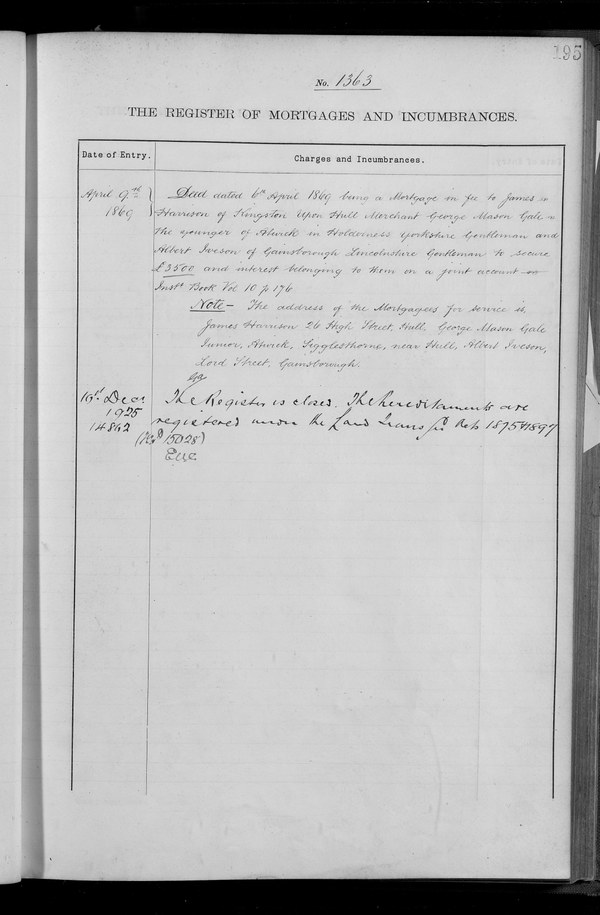 195
No. 1363
THE REGISTER OF MORTGAGES AND INCUMBRANCES.
Date of Entry.
Charges and Incumbrances.
April 9th
1869
Deed dated 6th April 1869 being a Mortgage in fee to James
Harrison of Kingston Upon Hull Merchant George Mason Gale
the younger of Atwick in Holderness Yorkshire Gentleman and
Albert Iveson of Gainsborough Lincolnshire Gentleman to secure
£3500 and interest belonging to them on a joint account
Inst's Book Vol 10 p 176
Note - The address of the Mortgagees for service is,
James Harrison 26 High Street, Hull. George Mason Gale
Junior, Atwick, Sigglesthorne, near Hull, Albert Iveson,
Lord Street, Gainsborough.
16th Decr
1925
14862
The Register is closed. The hereditaments are
registered under the Land Transfer Acts 1875 & 1897
15028)